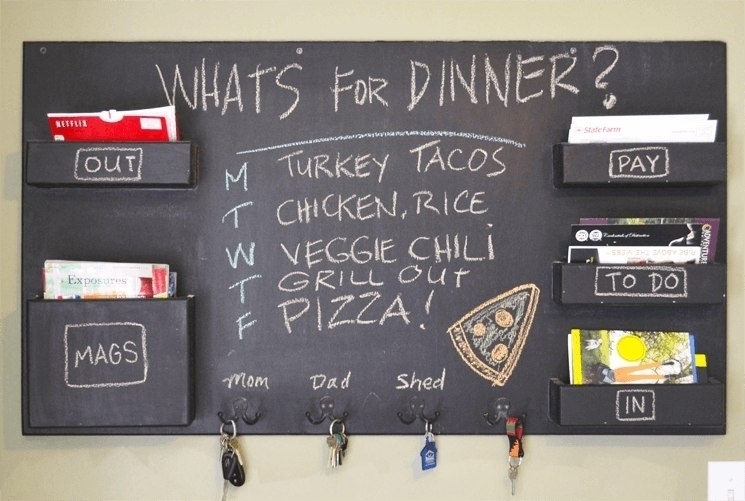 WHAT'S FOR DINNER?
NETFLIX
OUT
StateFarm
PAY
M TURKEY TACOS
T CHICKEN, RICE
W VEGGIE CHILI
T GRILL OUT
F PIZZA!
Exposures
MAGS
TO DO
IN
Mom Dad Shed